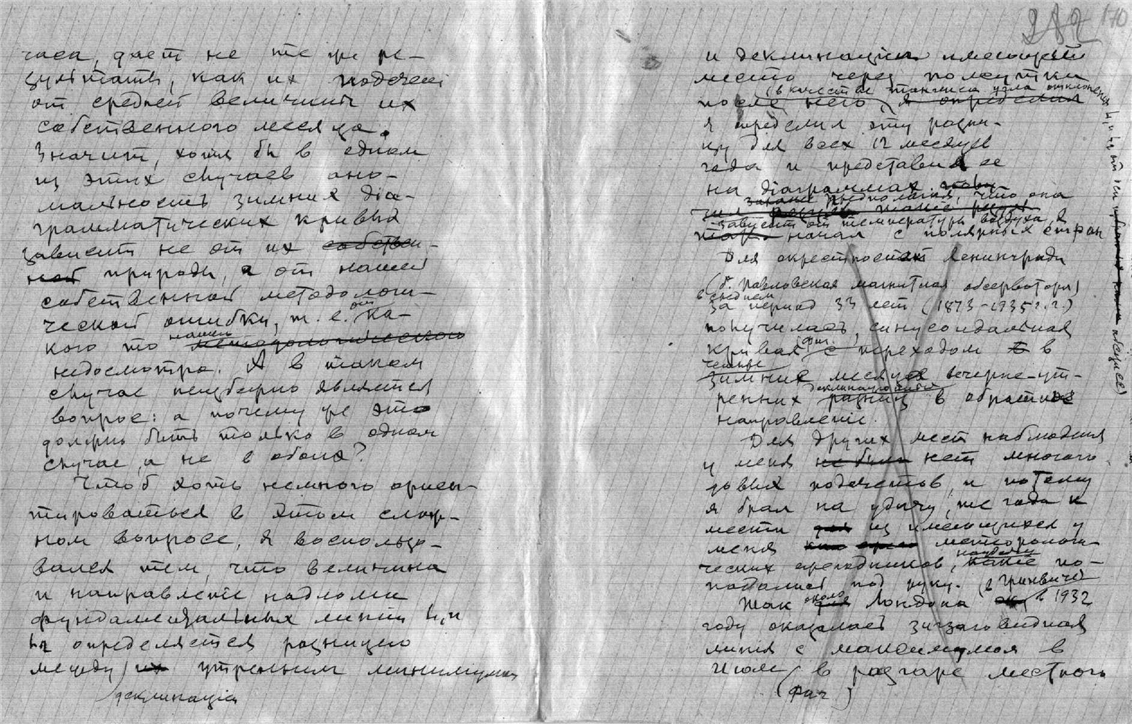 часа, дает не те же ре-
зультаты, как их подсчет
от средней величины их
собственного месяца.
Значит, хотя бы в одном
из этих случаев ано-
мальность зимних діа-
грамматических кривых
зависит не от их собствен-
ной природы, а от нашей
собственной методологи-
ческой ошибки, т. е. от ка-
кого то нашего методологического
недосмотра. А в таком
случае неизбежно является
вопрос: а почему же это
должно быть только в одном
случае, а не в обоих?
Чтоб хоть немного ориен-
тироваться в этом слож-
ном вопросе, я воспользо-
вался тем, что величина
и направленіе надлома
фундаментальных линий h₁ и
h₂ определяется разницею
между их утренним минимумом
деклинаціи
282 170
и деклинаціи имеющей
место через полсутки
(в качестве тангенса угла отклонения h₁ и h₂ от оси месяцев)
после него, я определил
я определил эту разни-
цу для всех 12 месяцев
года и представил ее
на діаграммах
заранее предполагая, что она
зависит от температуры воздуха, я
начал с полярных стран
Для окрестностей Ленинграда
(б. Павловская магнитная обсерваторія)
в среднем
за период 33 лет (1873-1935 г.г.)
получилась синусоидальная
кривая (фиг. ) с переходом в
четыре
зимних месяца вечерне-ут-
ренних деклинационных разниц в обратное
направленіе.
Для других мест наблюдения
у меня не было нет много-
довых подсчетов и потому
я брал на удачу, те года и
места из имеющихся у
меня метеорологи-
ческих ежегодников, какие по-
падались под руку.
Так около Лондона (в Гринвиче) в 1932
году оказалась зигзаговидная
линия с максимумом в
Июле (в разгаре местного
(фиг )